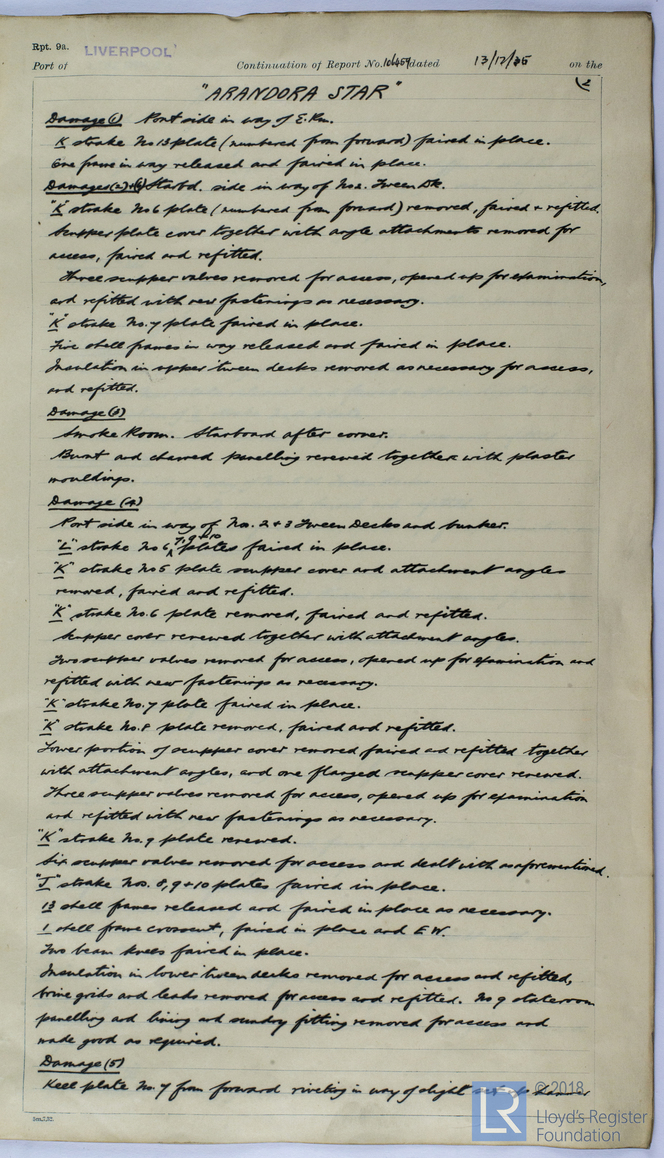 Rpt. 9a.
LIVERPOOL
Port of
Continuation of Report No. 10,459 dated 13/12/35 on the
2
"ARANDORA STAR"
Damage (1) Port side in way of E.Rm.
K strake No 13 plate (numbered from forward) faired in place.
One frame in way released and faired in place.
Damages (2)+(6) Starbd. side in way of No2. Tween Dk.
"K" strake No 6 plate (numbered from forward) removed, faired + refitted.
Scupper plate cover together with angle attachments removed for
access, faired and refitted.
Three scupper valves removed for access, opened up for examination,
and refitted with new fastenings as necessary.
"K" strake No.7 plate faired in place.
Five shell frames in way released and faired in place.
Insulation in upper tween decks removed as necessary for access,
and refitted.
Damage (3)
Smoke Room. Starboard after corner.
Burnt and charred panelling renewed together with plaster
mouldings.
Damage (4)
Port side in way of Nos. 2 + 3 Tween Decks and bunker.
"L" strake No 6, 7, 9 + 10 plates faired in place.
"K" strake No 5 plate scupper cover and attachment angles
removed, faired and refitted.
"K" strake No.6 plate removed, faired and refitted.
Scupper cover renewed together with attachment angles.
Two scupper valves removed for access, opened up for examination and
refitted with new fastenings as necessary.
"K" strake No.7 plate faired in place.
"K" strake No.8 plate removed, faired and refitted.
Lower portion of scupper cover removed faired and refitted together
with attachment angles, and one flanged scupper cover renewed.
Three scupper valves removed for access, opened up for examination
and refitted with new fastenings as necessary.
"K" strake No.9 plate renewed.
Six scupper valves removed for access and dealt with as aforementioned.
"J" strake Nos. 8, 9 + 10 plates faired in place.
13 shell frames released and faired in place as necessary.
1 shell frame cropped, faired in place and E.W.
Two beam knees faired in place.
Insulation in lower tween decks removed for access and refitted,
brine grids and leads removed for access and refitted. No 9 stateroom
panelling and lining and sundry fitting removed for access and
made good as required.
Damage (5)
Keel plate No.7 from forward riveting in way of slight
© 2018
LR
Lloyd's Register
Foundation